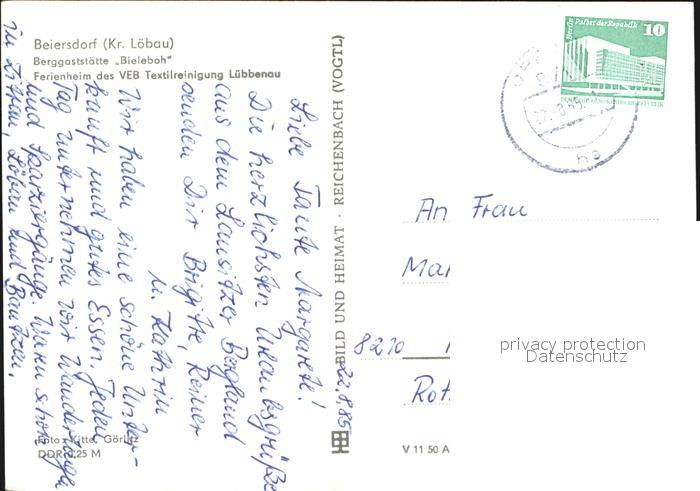 Beiersdorf (Kr. Löbau)
Berggaststätte „Bieleboh“
Ferienheim des VEB Textilreinigung Lübbenau
22.8.85
Liebe Tante Margarete!
Die herzlichsten Urlaubsgrüße
aus dem Lausitzer Bergland
senden Dir Brigitte, Reiner
u. Kathrin
Wir haben eine schöne Unter-
kunft und gutes Essen. Jeden
Tag unternehmen wir Wanderungen
und Spaziergänge. Waren schon
in Zittau, Löbau und Bautzen.
Foto: Kittel, Görlitz
DDR 0,25 M
BILD UND HEIMAT · REICHENBACH (VOGTL)
V 11 50 A
Berlin Palast der Republik
10
DEUTSCHE DEMOKRATISCHE REPUBLIK
An Frau
Mar
8210
Rot
privacy protection
Datenschutz